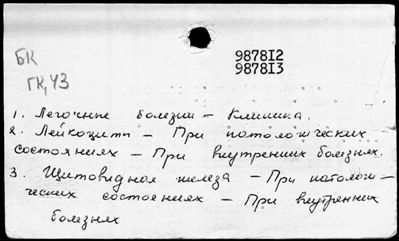 БК
ГК,43
9878I2
9878I3
1. Легочные болезни – Клиника.
2. Лейкоциты – При патологических
состояниях – При внутренних болезнях.
3. Щитовидная железа – При патологи-
ческих состояниях – При внутренних
болезнях